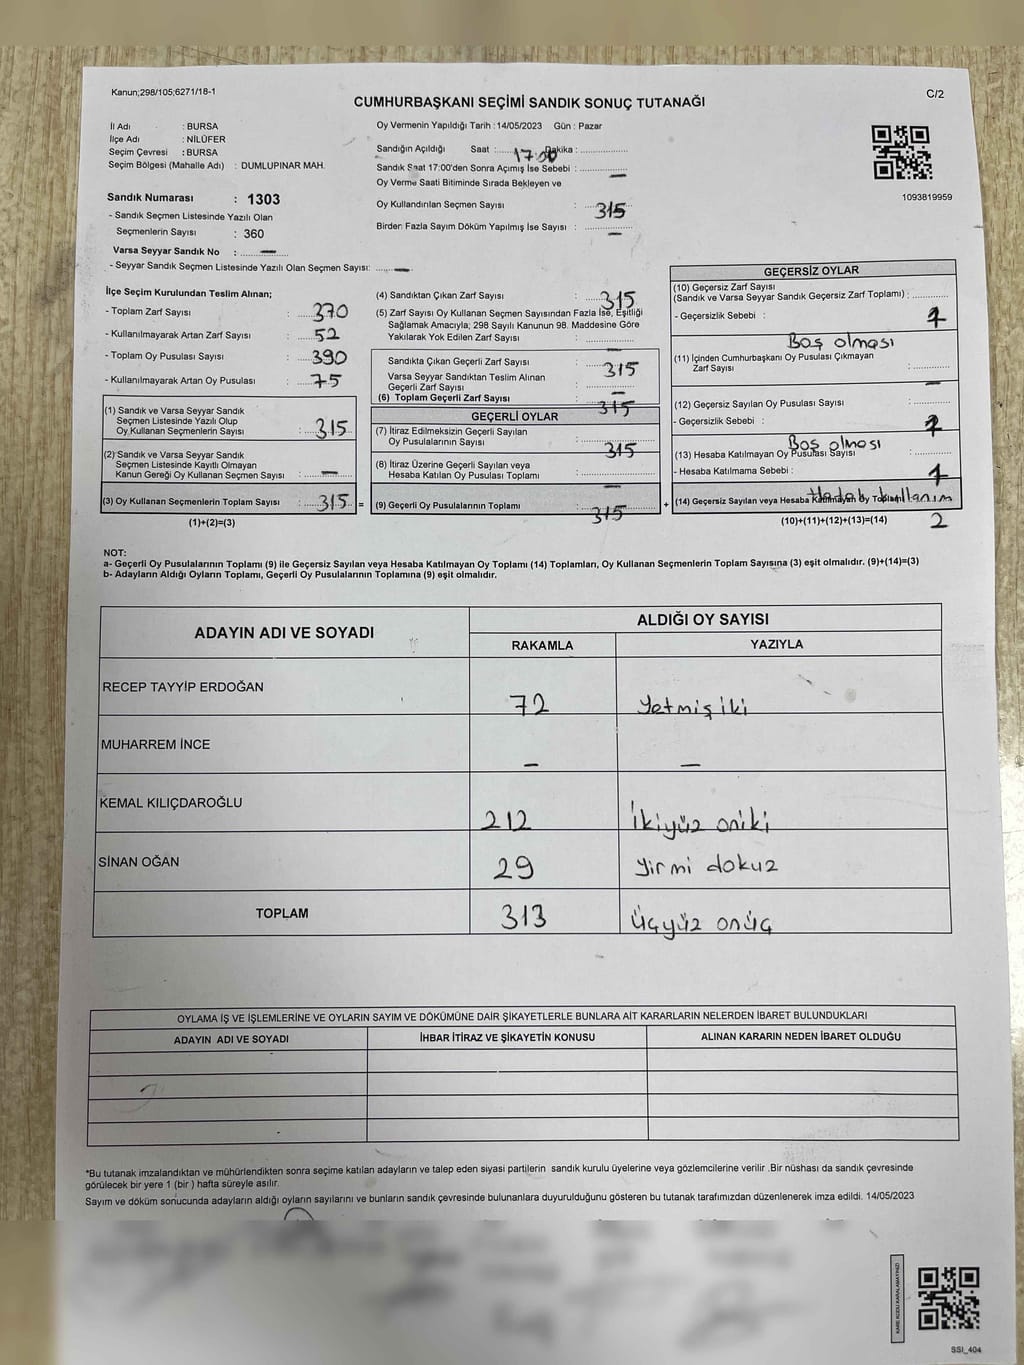 Kanun;298/105;6271/18-1
C/2
CUMHURBAŞKANI SEÇİMİ SANDIK SONUÇ TUTANAĞI
İl Adı : BURSA
İlçe Adı : NİLÜFER
Seçim Çevresi : BURSA
Seçim Bölgesi (Mahalle Adı) : DUMLUPINAR MAH.
Sandık Numarası : 1303
- Sandık Seçmen Listesinde Yazılı Olan
Seçmenlerin Sayısı : 360
Varsa Seyyar Sandık No : —
- Seyyar Sandık Seçmen Listesinde Yazılı Olan Seçmen Sayısı: —
Oy Vermenin Yapıldığı Tarih : 14/05/2023 Gün : Pazar
Sandığın Açıldığı Saat : 17:00 Dakika :
Sandık Saat 17:00'den Sonra Açımış İse Sebebi : —
Oy Verme Saati Bitiminde Sırada Bekleyen ve
Oy Kullandırılan Seçmen Sayısı : 315
Birden Fazla Sayım Döküm Yapılmış İse Sayısı : —
1093819959
İlçe Seçim Kurulundan Teslim Alınan;
- Toplam Zarf Sayısı : 370
- Kullanılmayarak Artan Zarf Sayısı : 52
- Toplam Oy Pusulası Sayısı : 390
- Kullanılmayarak Artan Oy Pusulası : 75
(1) Sandık ve Varsa Seyyar Sandık
Seçmen Listesinde Yazılı Olup
Oy Kullanan Seçmenlerin Sayısı : 315
(2) Sandık ve Varsa Seyyar Sandık
Seçmen Listesinde Kayıtlı Olmayan
Kanun Gereği Oy Kullanan Seçmen Sayısı : —
(3) Oy Kullanan Seçmenlerin Toplam Sayısı : 315 =
(1)+(2)=(3)
(4) Sandıktan Çıkan Zarf Sayısı : 315
(5) Zarf Sayısı Oy Kullanan Seçmen Sayısından Fazla İse, Eşitliği
Sağlamak Amacıyla; 298 Sayılı Kanunun 98. Maddesine Göre
Yakılarak Yok Edilen Zarf Sayısı : —
Sandıkta Çıkan Geçerli Zarf Sayısı : 315
Varsa Seyyar Sandıktan Teslim Alınan
Geçerli Zarf Sayısı : —
(6) Toplam Geçerli Zarf Sayısı : 315
GEÇERLİ OYLAR
(7) İtiraz Edilmeksizin Geçerli Sayılan
Oy Pusulalarının Sayısı : 315
(8) İtiraz Üzerine Geçerli Sayılan veya
Hesaba Katılan Oy Pusulası Toplamı : —
(9) Geçerli Oy Pusulalarının Toplamı : 315 +
GEÇERSİZ OYLAR
(10) Geçersiz Zarf Sayısı
(Sandık ve Varsa Seyyar Sandık Geçersiz Zarf Toplamı) :
- Geçersizlik Sebebi : 1
Boş olması
(11) İçinden Cumhurbaşkanı Oy Pusulası Çıkmayan
Zarf Sayısı : —
(12) Geçersiz Sayılan Oy Pusulası Sayısı :
- Geçersizlik Sebebi :
Boş olması
(13) Hesaba Katılmayan Oy Pusulası Sayısı :
- Hesaba Katılmama Sebebi : 1
kullanım
(14) Geçersiz Sayılan veya Hesaba Katılmayan Oy Toplamı
(10)+(11)+(12)+(13)=(14) 2
NOT:
a- Geçerli Oy Pusulalarının Toplamı (9) ile Geçersiz Sayılan veya Hesaba Katılmayan Oy Toplamı (14) Toplamları, Oy Kullanan Seçmenlerin Toplam Sayısına (3) eşit olmalıdır. (9)+(14)=(3)
b- Adayların Aldığı Oyların Toplamı, Geçerli Oy Pusulalarının Toplamına (9) eşit olmalıdır.
ADAYIN ADI VE SOYADI
ALDIĞI OY SAYISI
RAKAMLA YAZIYLA
RECEP TAYYİP ERDOĞAN 72 Yetmiş iki
MUHARREM İNCE — —
KEMAL KILIÇDAROĞLU 212 İkiyüz oniki
SİNAN OĞAN 29 Yirmi dokuz
TOPLAM 313 Üçyüz onüç
OYLAMA İŞ VE İŞLEMLERİNE VE OYLARIN SAYIM VE DÖKÜMÜNE DAİR ŞİKAYETLERLE BUNLARA AİT KARARLARIN NELERDEN İBARET BULUNDUKLARI
ADAYIN ADI VE SOYADI İHBAR İTİRAZ VE ŞİKAYETİN KONUSU ALINAN KARARIN NEDEN İBARET OLDUĞU
*Bu tutanak imzalandıktan ve mühürlendikten sonra seçime katılan adayların ve talep eden siyasi partilerin sandık kurulu üyelerine veya gözlemcilerine verilir .Bir nüshası da sandık çevresinde
görülecek bir yere 1 (bir ) hafta süreyle asılır.
Sayım ve döküm sonucunda adayların aldığı oyların sayılarını ve bunların sandık çevresinde bulunanlara duyurulduğunu gösteren bu tutanak tarafımızdan düzenlenerek imza edildi. 14/05/2023
KARE KODU KARALAMAYINIZ!
SSI_404